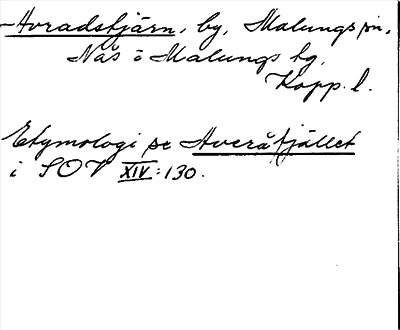 -Avradstjärn, by, Malungs sn,
Nås o Malungs tg,
Kopp. l.
Etymologi se Averåfjället
i SOV XIV:130.